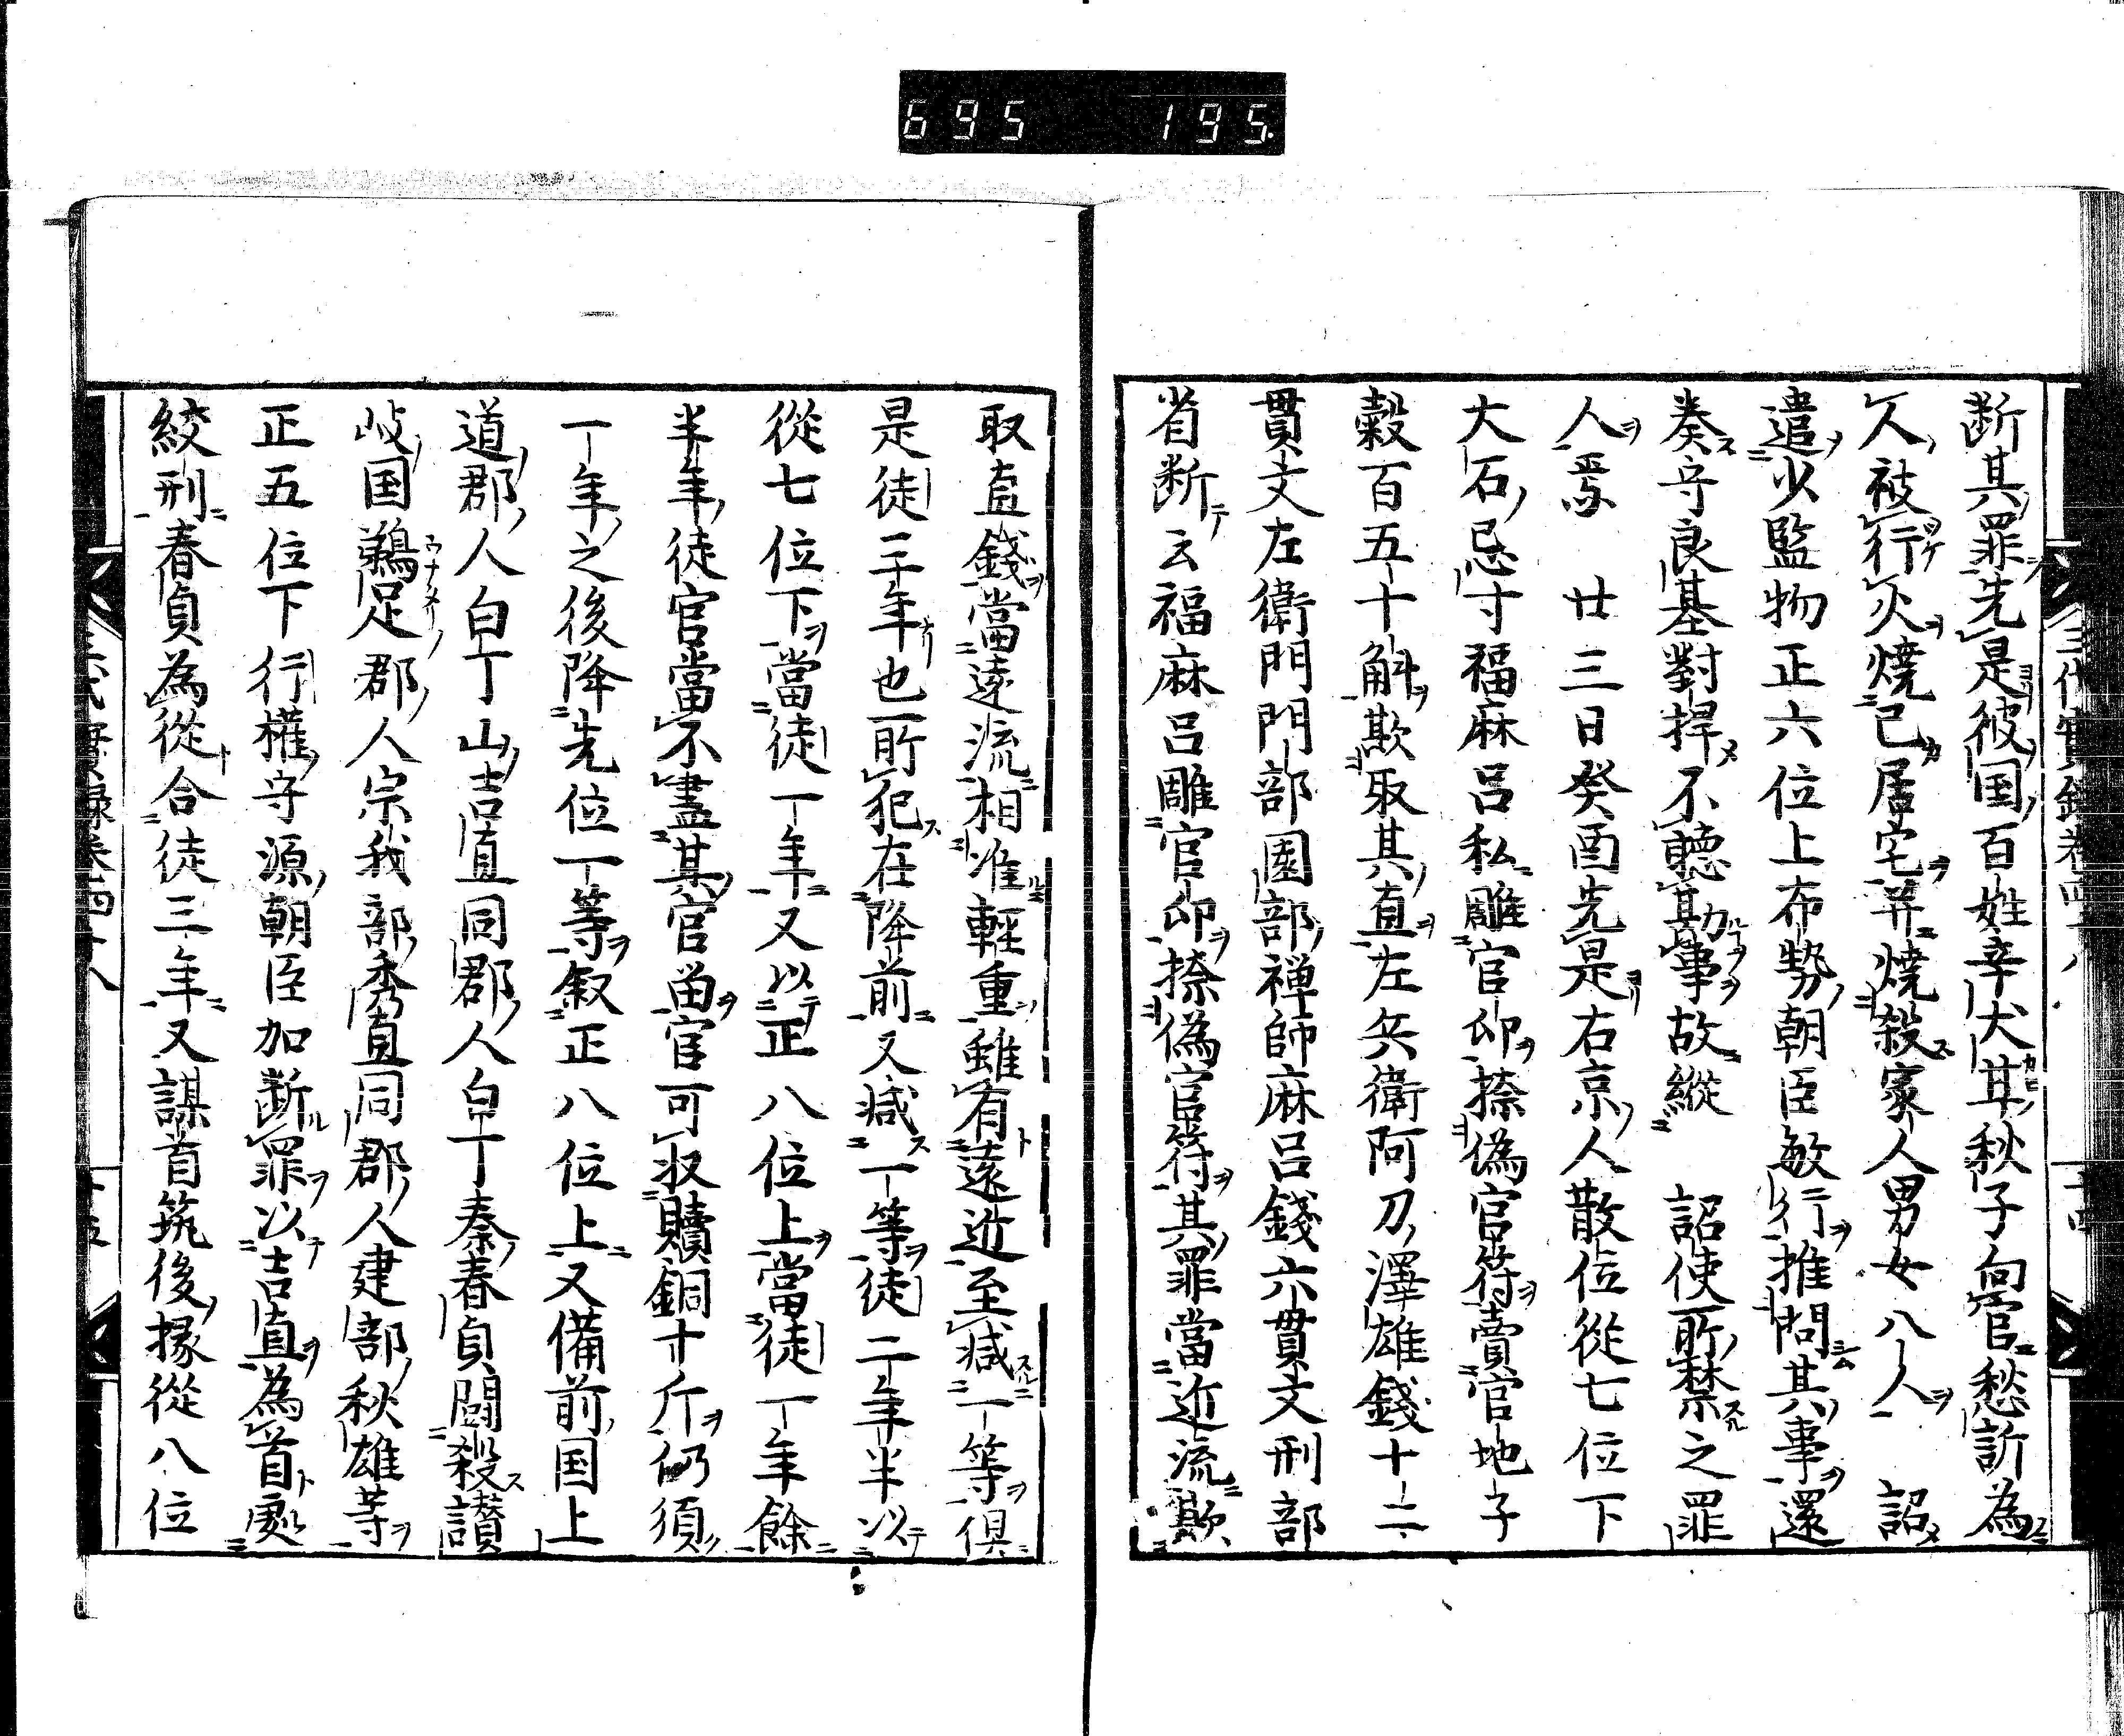 695 195
断其罪先是彼国百姓辛犬甘秋子向官愁訴為
人被行火焼己居宅并焼殺家人男女八人 詔
遣少監物正六位上布勢朝臣敏行推問其事還
奏守良基對捍不聴勘事故縦 詔使所禁之罪
人焉 廿三日癸酉先是右京人散位從七位下
大石忌寸福麻呂私雕官印捺偽官符賣官地子
穀百五十斛欺取其直左兵衛阿刀澤雄錢十二
貫文左衛門門部園部禅師麻呂錢六貫文刑部
省断云福麻呂雕官印捺偽官符其罪當近流欺
取直錢當遠流相准輕重雖有遠近至减一等俱
是徒三年也所犯在降前又减一等徒二年半以
從七位下當徒一年又以正八位上當徒一年餘
半年徒官當不盡其官留官可収贖銅十斤仍須
一年之後降先位一等叙正八位上又備前国上
道郡人白丁山吉直同郡人白丁秦春貞闘殺讃
岐国鵜足郡人宗我部秀直同郡人建部秋雄等
正五位下行權守源朝臣加断罪以吉直為首處
絞刑春貞為從合徒三年又謀首筑後掾從八位
三代實録巻四十八
三代實録巻四十八